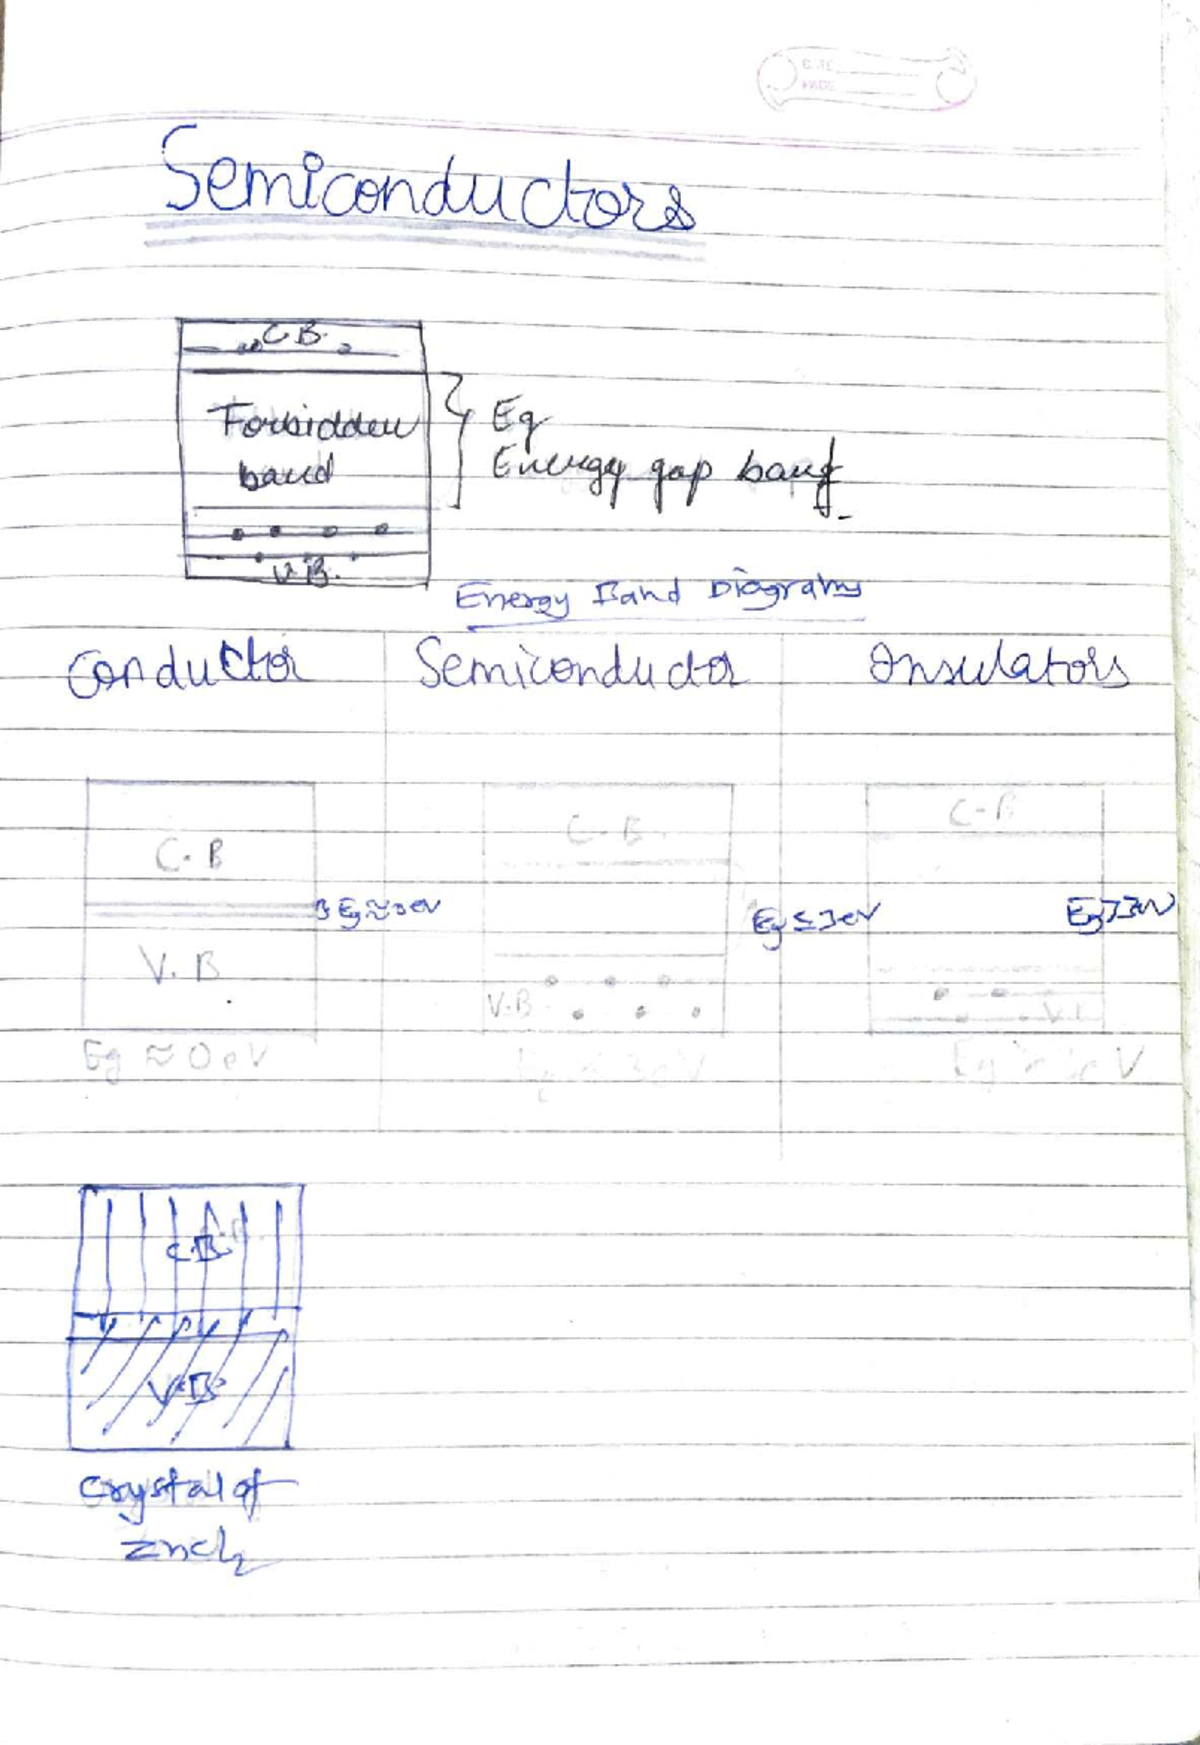 DATE
PAGE
Semiconductors
C.B.
Forbidden
band
Eg
Energy gap band
V.B.
Energy Band Diagrams
Conductor Semiconductor Insulators
C-B
C.B
C.B.
Eg ≤ 3eV
V.B
V.B
Eg ≈ 0 eV
C.B
V.B
Crystal of
ZnCl2